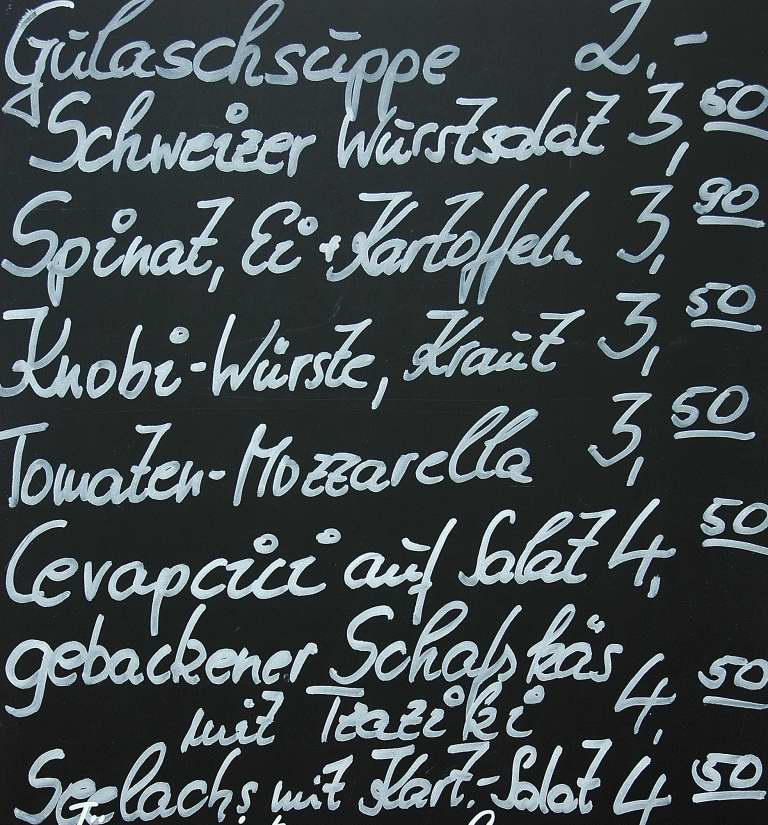 Gulaschsuppe 2,-
Schweizer Wurstsalat 3,50
Spinat, Ei + Kartoffeln 3,90
Knobi-Würste, Kraut 3,50
Tomaten-Mozzarella 3,50
Cevapcici auf Salat 4,50
gebackener Schafskäs
mit Tzaziki 4,50
Seelachs mit Kart.-Salat 4,50